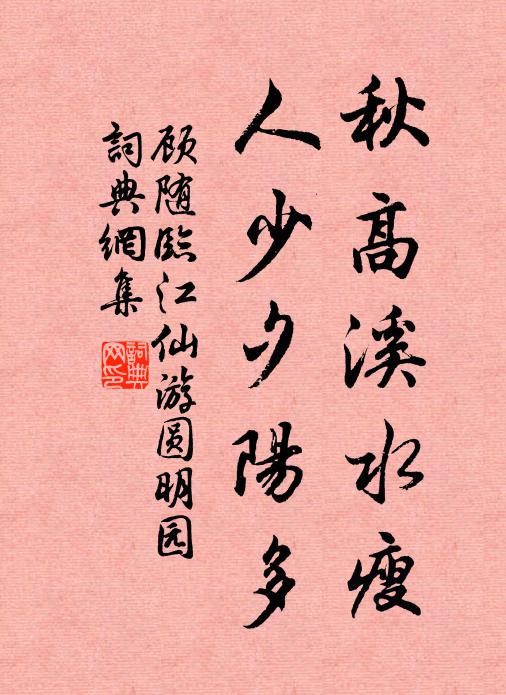 秋高溪水瘦
人少夕陽多
顾随臨江仙游圆明园
詞典網集
詞典网印